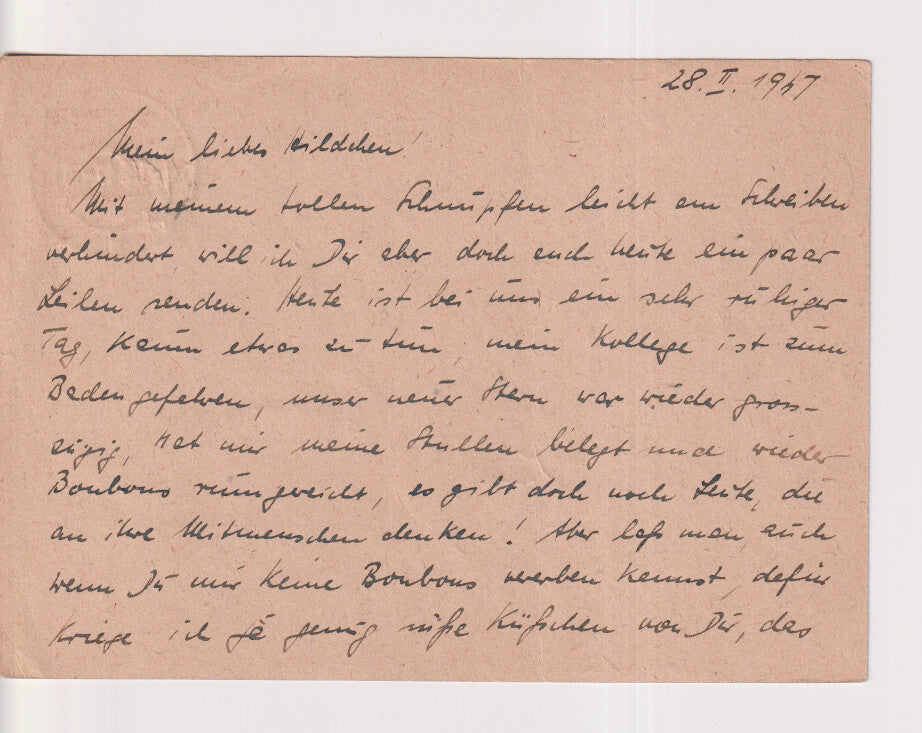 28. II. 1947
Mein liebes Hildchen!
Mit meinem tollen Schnupfen leicht am Schreiben
verhindert will ich Dir aber doch auch heute ein paar
Zeilen senden. Heute ist bei uns ein sehr ruhiger
Tag, kaum etwas zu tun, mein Kollege ist zum
Baden gefahren, unser neuer Stern war wieder gross-
zügig, hat mir meine Stullen belegt und wieder
Bonbons rumgereicht, es gibt doch noch Leute, die
an ihre Mitmenschen denken! Aber laß man, auch
wenn Du mir keine Bonbons vererben kannst, dafür
kriege ich ja genug süße Küßchen von Dir, das